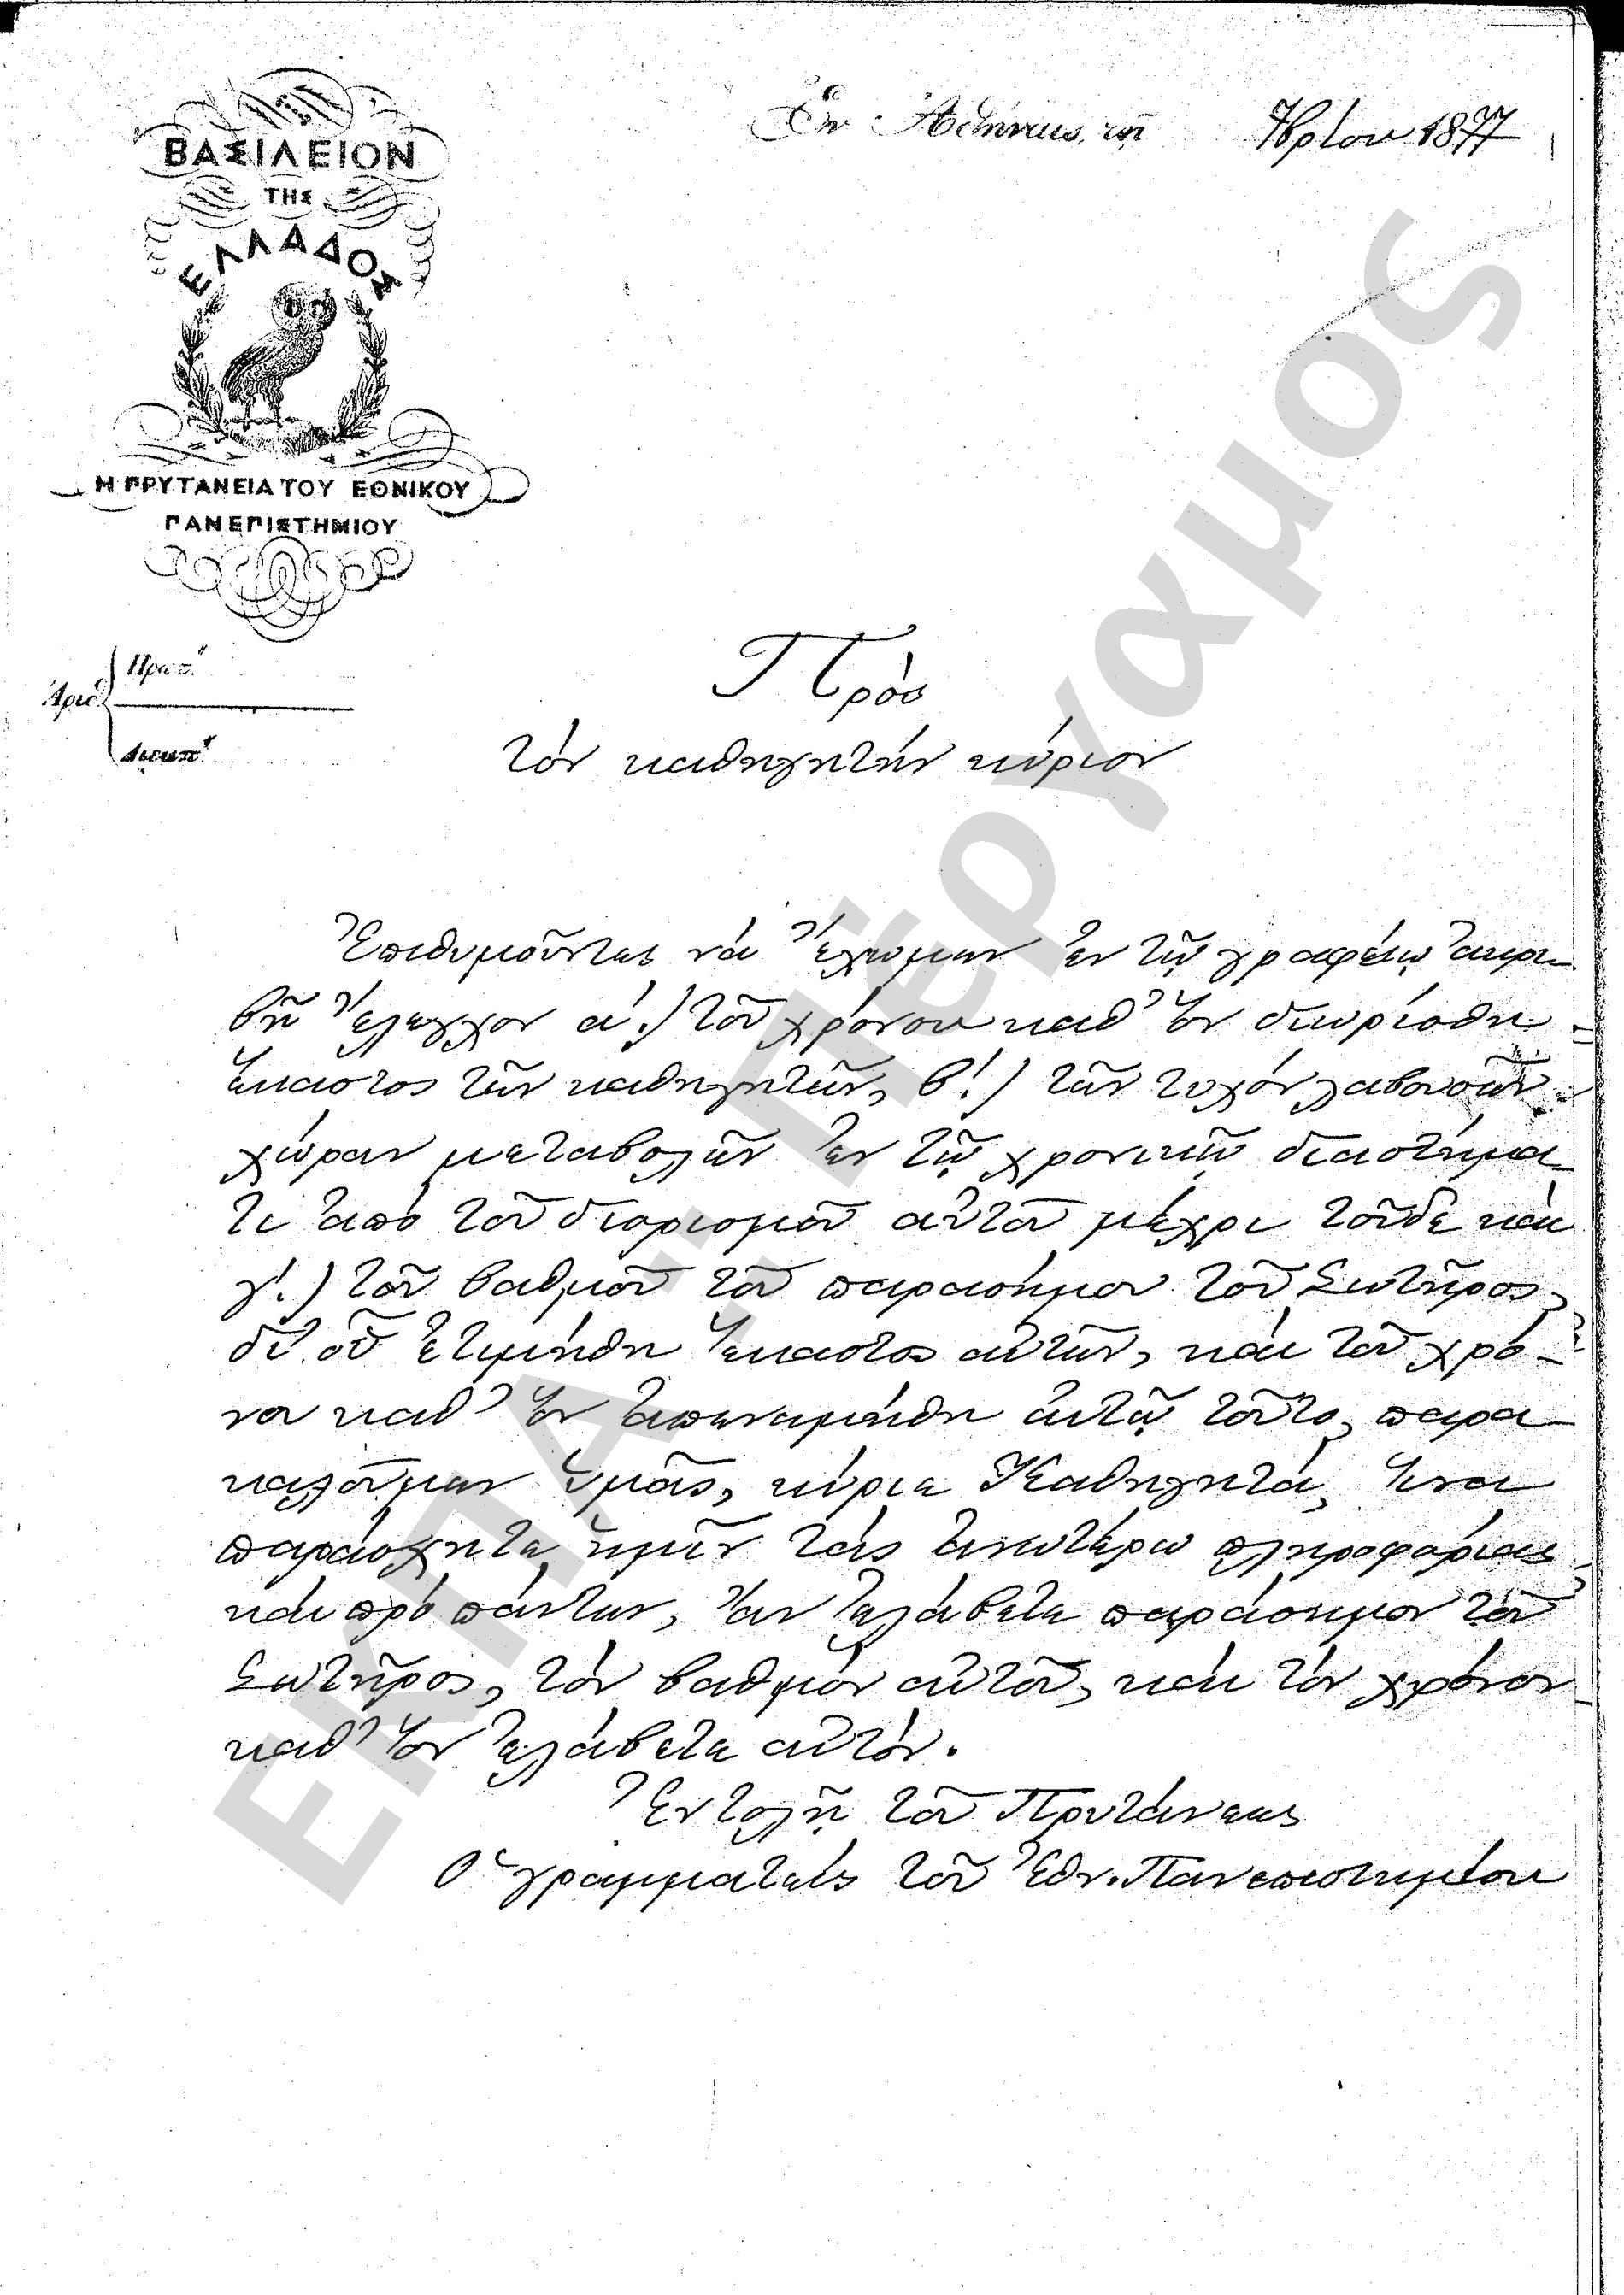 ΒΑΣΙΛΕΙΟΝ
ΤΗΣ
ΕΛΛΑΔΟΣ
Η ΠΡΥΤΑΝΕΙΑ ΤΟΥ ΕΘΝΙΚΟΥ
ΠΑΝΕΠΙΣΤΗΜΙΟΥ
Ἐν Ἀθήναις, τῇ 7βρίου 1877
Ἀριθ.
Πρωτ.
Διεκπ.
Πρὸς
τὸν καθηγητὴν κύριον
Ἐπιθυμοῦντες νὰ ἔχωμεν ἐν τῷ γραφείῳ ἀκρι-
βῆ ἔλεγχον α΄.) τοῦ χρόνου καθ' ὃν διωρίσθη
ἕκαστος τῶν καθηγητῶν, β΄.) τῶν τυχὸν λαβουσῶν
χώραν μεταβολῶν ἐν τῷ χρονικῷ διαστήμα-
τι ἀπὸ τοῦ διορισμοῦ αὐτοῦ μέχρι τοῦδε καὶ
γ΄.) τοῦ βαθμοῦ τοῦ παρασήμου τοῦ Σωτῆρος,
δι' οὗ ἐτιμήθη ἕκαστος αὐτῶν, καὶ τοῦ χρό-
νου καθ' ὃν ἀπενεμήθη αὐτῷ τοῦτο, παρα-
καλοῦμεν ὑμᾶς, κύριε Καθηγητά, ἵνα
παράσχητε ἡμῖν τὰς ἀνωτέρω πληροφορίας
καὶ πρὸ πάντων, ἂν ἐλάβετε παράσημον τοῦ
Σωτῆρος, τὸν βαθμὸν αὐτοῦ, καὶ τὸν χρόνον
καθ' ὃν ἐλάβετε αὐτόν.
Ἐντολῇ τοῦ Πρυτάνεως
Ὁ γραμματεὺς τοῦ Ἐθν. Πανεπιστημίου
ΕΚΠΑ - Πέργαμος